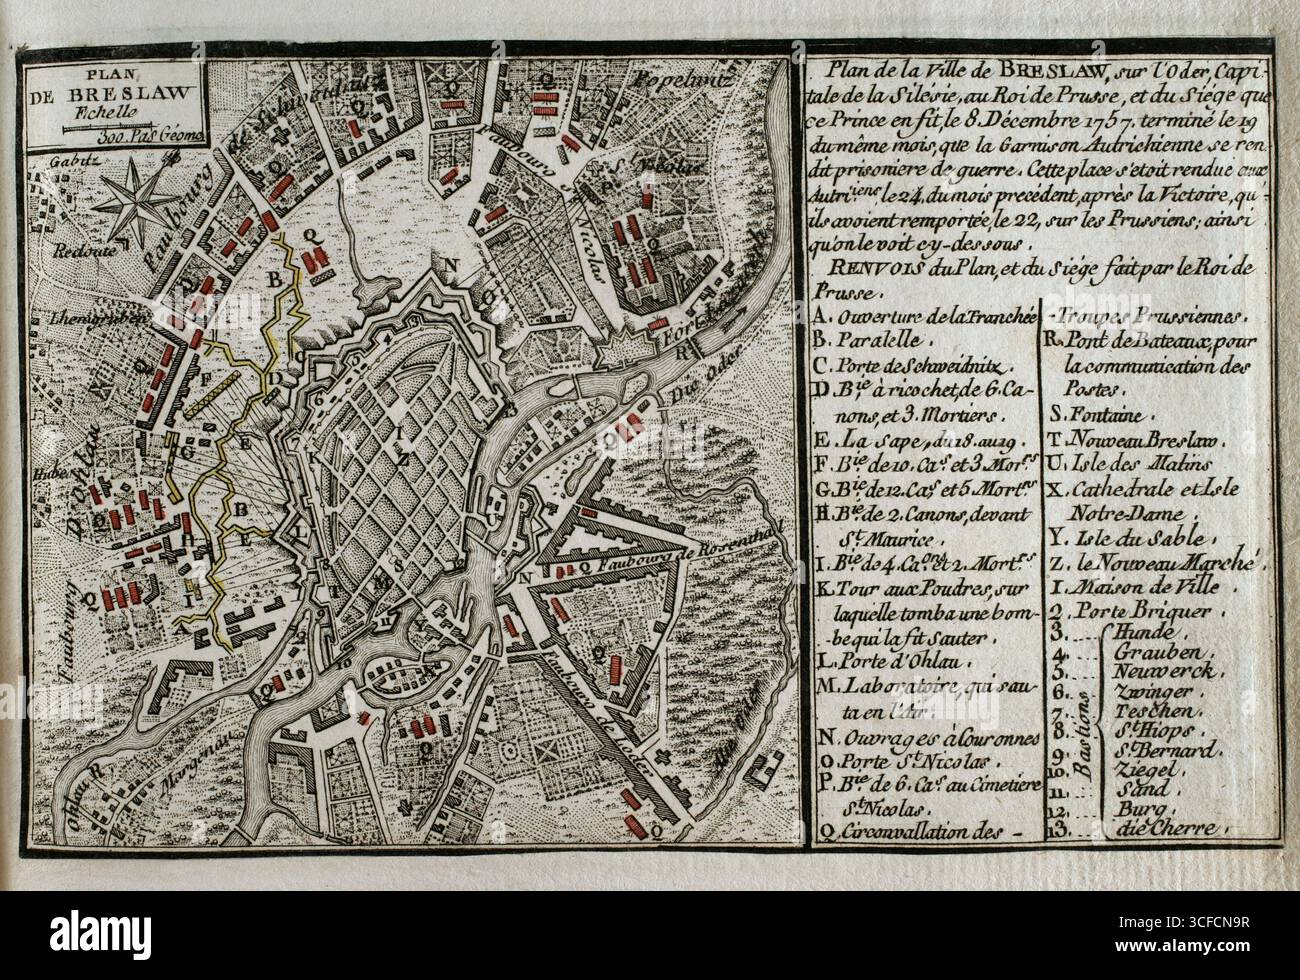 PLAN
DE BRESLAW
Echelle
300. Pas Géome.
Gabitz
Redoute
Lhemgruben
Hube
Faubourg d'Ohlau
Faubourg de
Faubourg S. Nicolas
Popelwitz
S. Nicolas
Die Oder
Faubourg de Rosenthal
Faubourg de l'Oder
Margenau
Ohlau R.
Plan de la Ville de BRESLAW, sur l'Oder, Capi-
tale de la Silésie, au Roi de Prusse, et du Siége que
ce Prince en fit, le 8. Décembre 1757. terminé le 19
du même mois, que la Garnison Autrichienne se ren-
dit prisoniere de guerre. Cette place s'étoit rendue aux
Autr.iens le 24, du mois precédent, après la Victoire, qu'-
ils avoient remportée, le 22, sur les Prussiens; ainsi
qu'on le voit cy-dessous.
RENVOIS du Plan, et du Siége fait par le Roi de
Prusse.
A. Ouverture de la Tranchée
B. Paralelle.
C. Porte de Schweidnitz.
D. B.ie à ricochet, de 6. Ca-
nons, et 3. Mortiers.
E. La Sape, du 18. au 19.
F. B.ie de 10. Ca.s et 3. Mor.rs
G. B.ie de 12. Ca.s et 5. Mort.rs
H. B.ie de 2. Canons, devant
S.t Maurice.
I. B.ie de 4. Ca.ons et 2. Mort.rs
K. Tour aux Poudres, sur
laquelle tomba une bom-
-be qui la fit Sauter.
L. Porte d'Ohlau.
M. Laboratoire, qui sau-
ta en l'air.
N. Ouvrages à Couronnes
O. Porte S.t Nicolas.
P. B.ie de 6. Ca.s au Cimetiere
S.t Nicolas.
Q. Circonvallation des -
-Troupes Prussiennes.
R. Pont de Bateaux, pour
la communication des
Postes.
S. Fontaine.
T. Nouveau Breslaw.
U. Isle des Matins
X. Cathedrale et Isle
Notre-Dame.
Y. Isle du Sable.
Z. le Nouveau Marché.
I. Maison de Ville.
2. Porte Briguer.
Bastions
3. Hunde.
4. Grauben.
5. Neuwerck.
6. Zwinger.
7. Teschen.
8. S.t Hiops.
9. S.t Bernard.
10. Ziegel.
11. Sand.
12. Burg.
13. die Cherre.
alamy
Image ID: 3CFCN9R
www.alamy.com